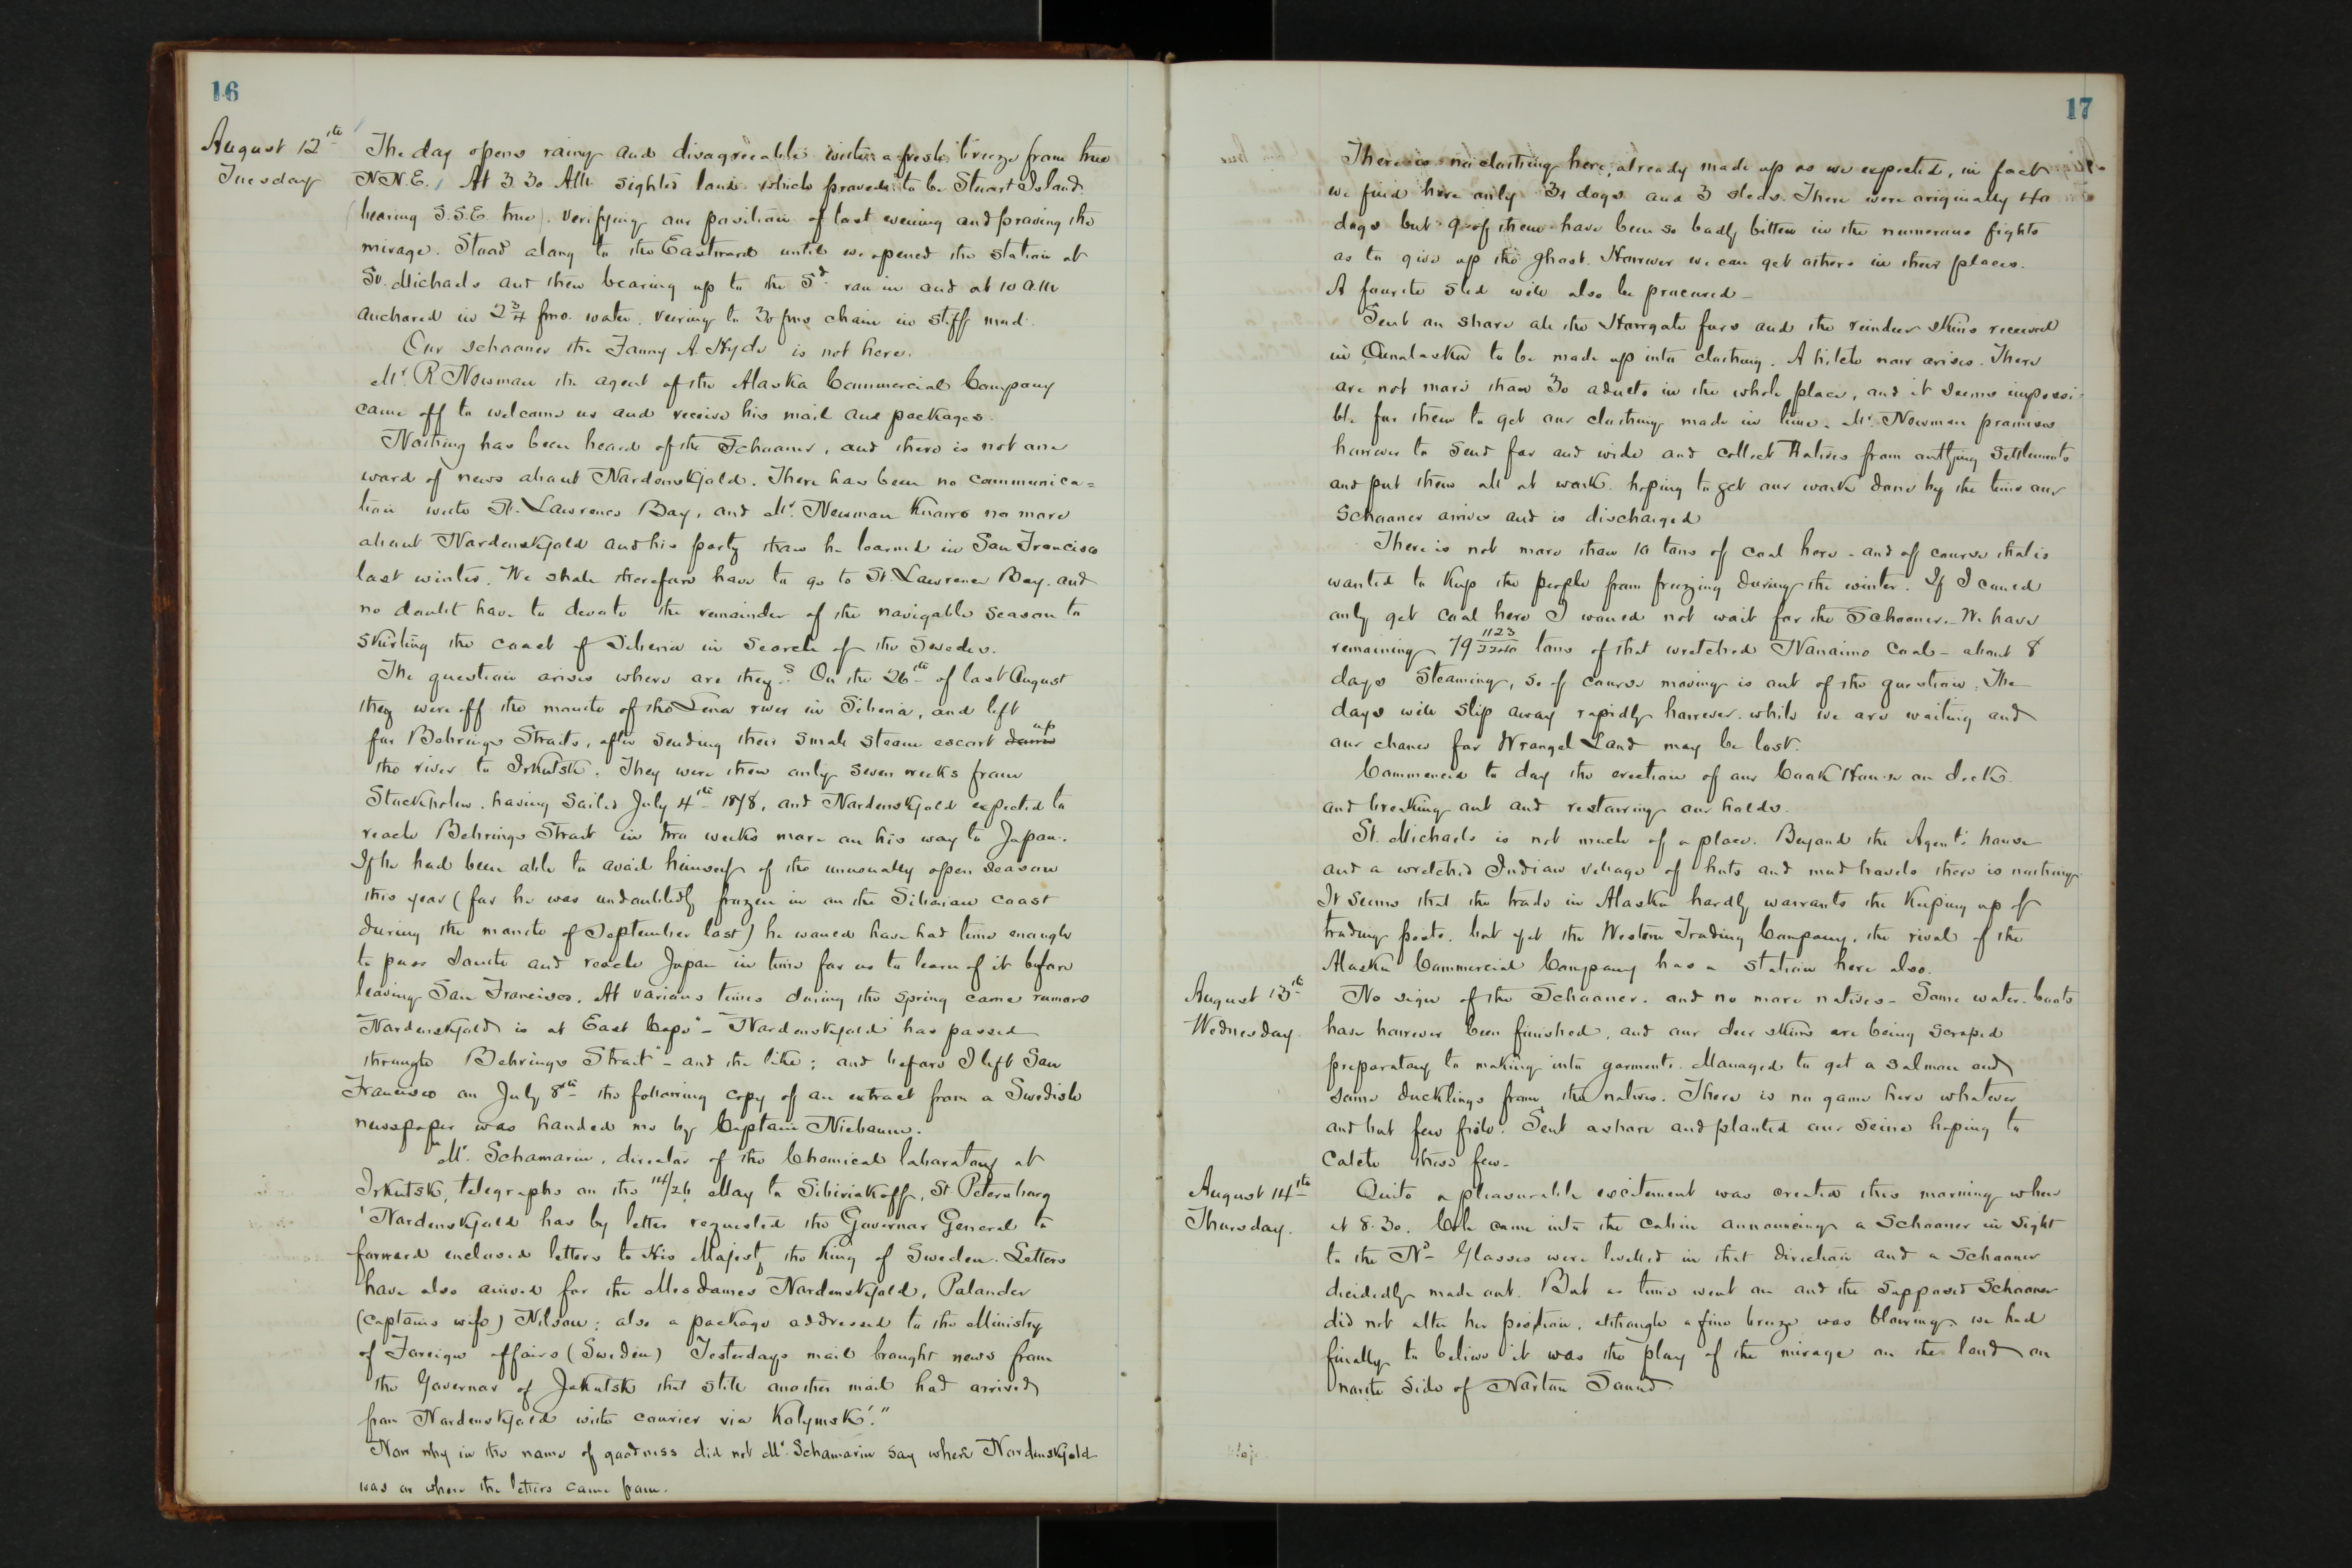 16
August 12th
Tuesday
The day opens rainy and disagreeable with a fresh breeze from true
N.N.E. At 3.30 A.M. sighted land which proved to be Stuart Island
(bearing S.S.E. true). Verifying our position of last evening and proving the
mirage. Stood along to the Eastward until we opened the station at
St. Michaels and then bearing up to the Sd. ran in and at 10 a.m
anchored in 2 3/4 fms. water. veering to 30 fms chain in stiff mud.
Our schooner the Fanny A. Hyde is not here.
Mr. R. Newman the agent of the Alaska Commercial Company
came off to welcome us and receive his mail and packages.
Nothing has been heard of the Schooner, and there is not one
word of news about Nordenskjold. There has been no communica=
tion with St. Lawrence Bay, and Mr. Newman knows no more
about Nordenskjold and his party than he learned in San Francisco
last winter. We shall therefore have to go to St. Lawrence Bay. and
no doubt have to devote the remainder of the navigable season to
skirting the coast of Siberia in search of the Swedes.
The question arises where are they? On the 26th of last August
they were off the mouth of the Lena river in Siberia, and left
for Behrings Straits, after sending their small steam escort down up
the river to Irkutsk. They were then only seven weeks from
Stockholm. having sailed July 4th 1878, and Nordenskjold expected to
reach Behrings Strait in two weeks more on his way to Japan.
If he had been able to avail himself of the unusually open season
this year (for he was undoubtedly frozen in on the Siberian coast
during the month of September last) he would have had time enough
to pass South and reach Japan in time for us to learn of it before
leaving San Francisco. At various times during the spring came rumors
"Nordenskjold is at East Cape" - "Nordenskjold has passed
through Behrings Strait" - and the like; and before I left San
Francisco on July 8th the following copy of an extract from a Swedish
newspaper was handed me by Captain Niebaum.
"Mr. Schamarin, director of the Chemical laboratory at
Irkutsk, telegraphs on the 14/26 May to Sibiriakoff, St. Petersburg
'Nordenskjold has by letter requested the Governor General to
forward enclosed letters to His Majesty the King of Sweden. Letters
have also arrived for the Mesdames Nordenskjold, Palander
(captains wife) Nilson; also a package addressed to the Ministry
of Foreign affairs (Sweden) Yesterdays mail brought news from
the Governor of Jakutsk that still another mail had arrived
from Nordenskjold with courier via Kolymsk'."
Now why in the name of goodness did not Mr. Schamarin say where Nordenskjold
was or where the letters came from.
17
There is no clothing here, already made up as we expected, in fact
we find here only 31 dogs and 3 sleds. There were originally 40
dogs but 9 of them have been so badly bitten in the numerous fights
as to give up the ghost. However we can get others in their places.
A fourth sled will also be procured -
Sent on shore all the furs and the reindeer skins received
in Ounalaska to be made up into clothing. A hitch now arises. There
are not more than 30 adults in the whole place, and it seems impossi-
ble for them to get our clothing made in time. Mr. Newman promises
however to send far and wide and collect Natives from outlying settlements
and put them all at work. hoping to get our work done by the time our
Schooner arrives and is discharged
There is not more than 10 tons of coal here - and of course that is
wanted to keep the people from freezing during the winter. If I could
only get coal here I would not wait for the Schooner. We have
remaining 79 1123/2240 tons of that wretched Nanaimo coal - about 8
days steaming, so of course moving is out of the question. The
days will slip away rapidly however. while we are waiting and
our chance for Wrangel Land may be lost.
Commenced to day the erection of our Cook House on deck.
and breaking out and restowing our holds.
St. Michaels is not much of a place. Beyond the Agent's house
and a wretched Indian village of huts and mud hovels there is nothing
It seems that the trade in Alaska hardly warrants the keeping up of
trading posts. but yet the Western Trading Company, the rival of the
Alaska Commercial Company has a station here also.
August 13th
Wednesday.
No sign of the Schooner. and no more natives - Some water-boots
have however been finished, and our deer skins are being scraped
preparatory to making into garments. Managed to get a salmon and
some ducklings from the natives. There is no game here whatever
and but few fish. Sent ashore and planted our seine hoping to
catch those few -
August 14th
Thursday.
Quite a pleasurable excitement was created this morning when
at 8.30. Cole came into the cabin announcing a Schooner in sight
to the Nd - Glasses were levelled in that direction and a schooner
decidedly made out. But as time went on and the supposed Schooner
did not alter her position, although a fine breeze was blowing we had
finally to believe it was the play of the mirage on the land on
north side of Norton Sound.